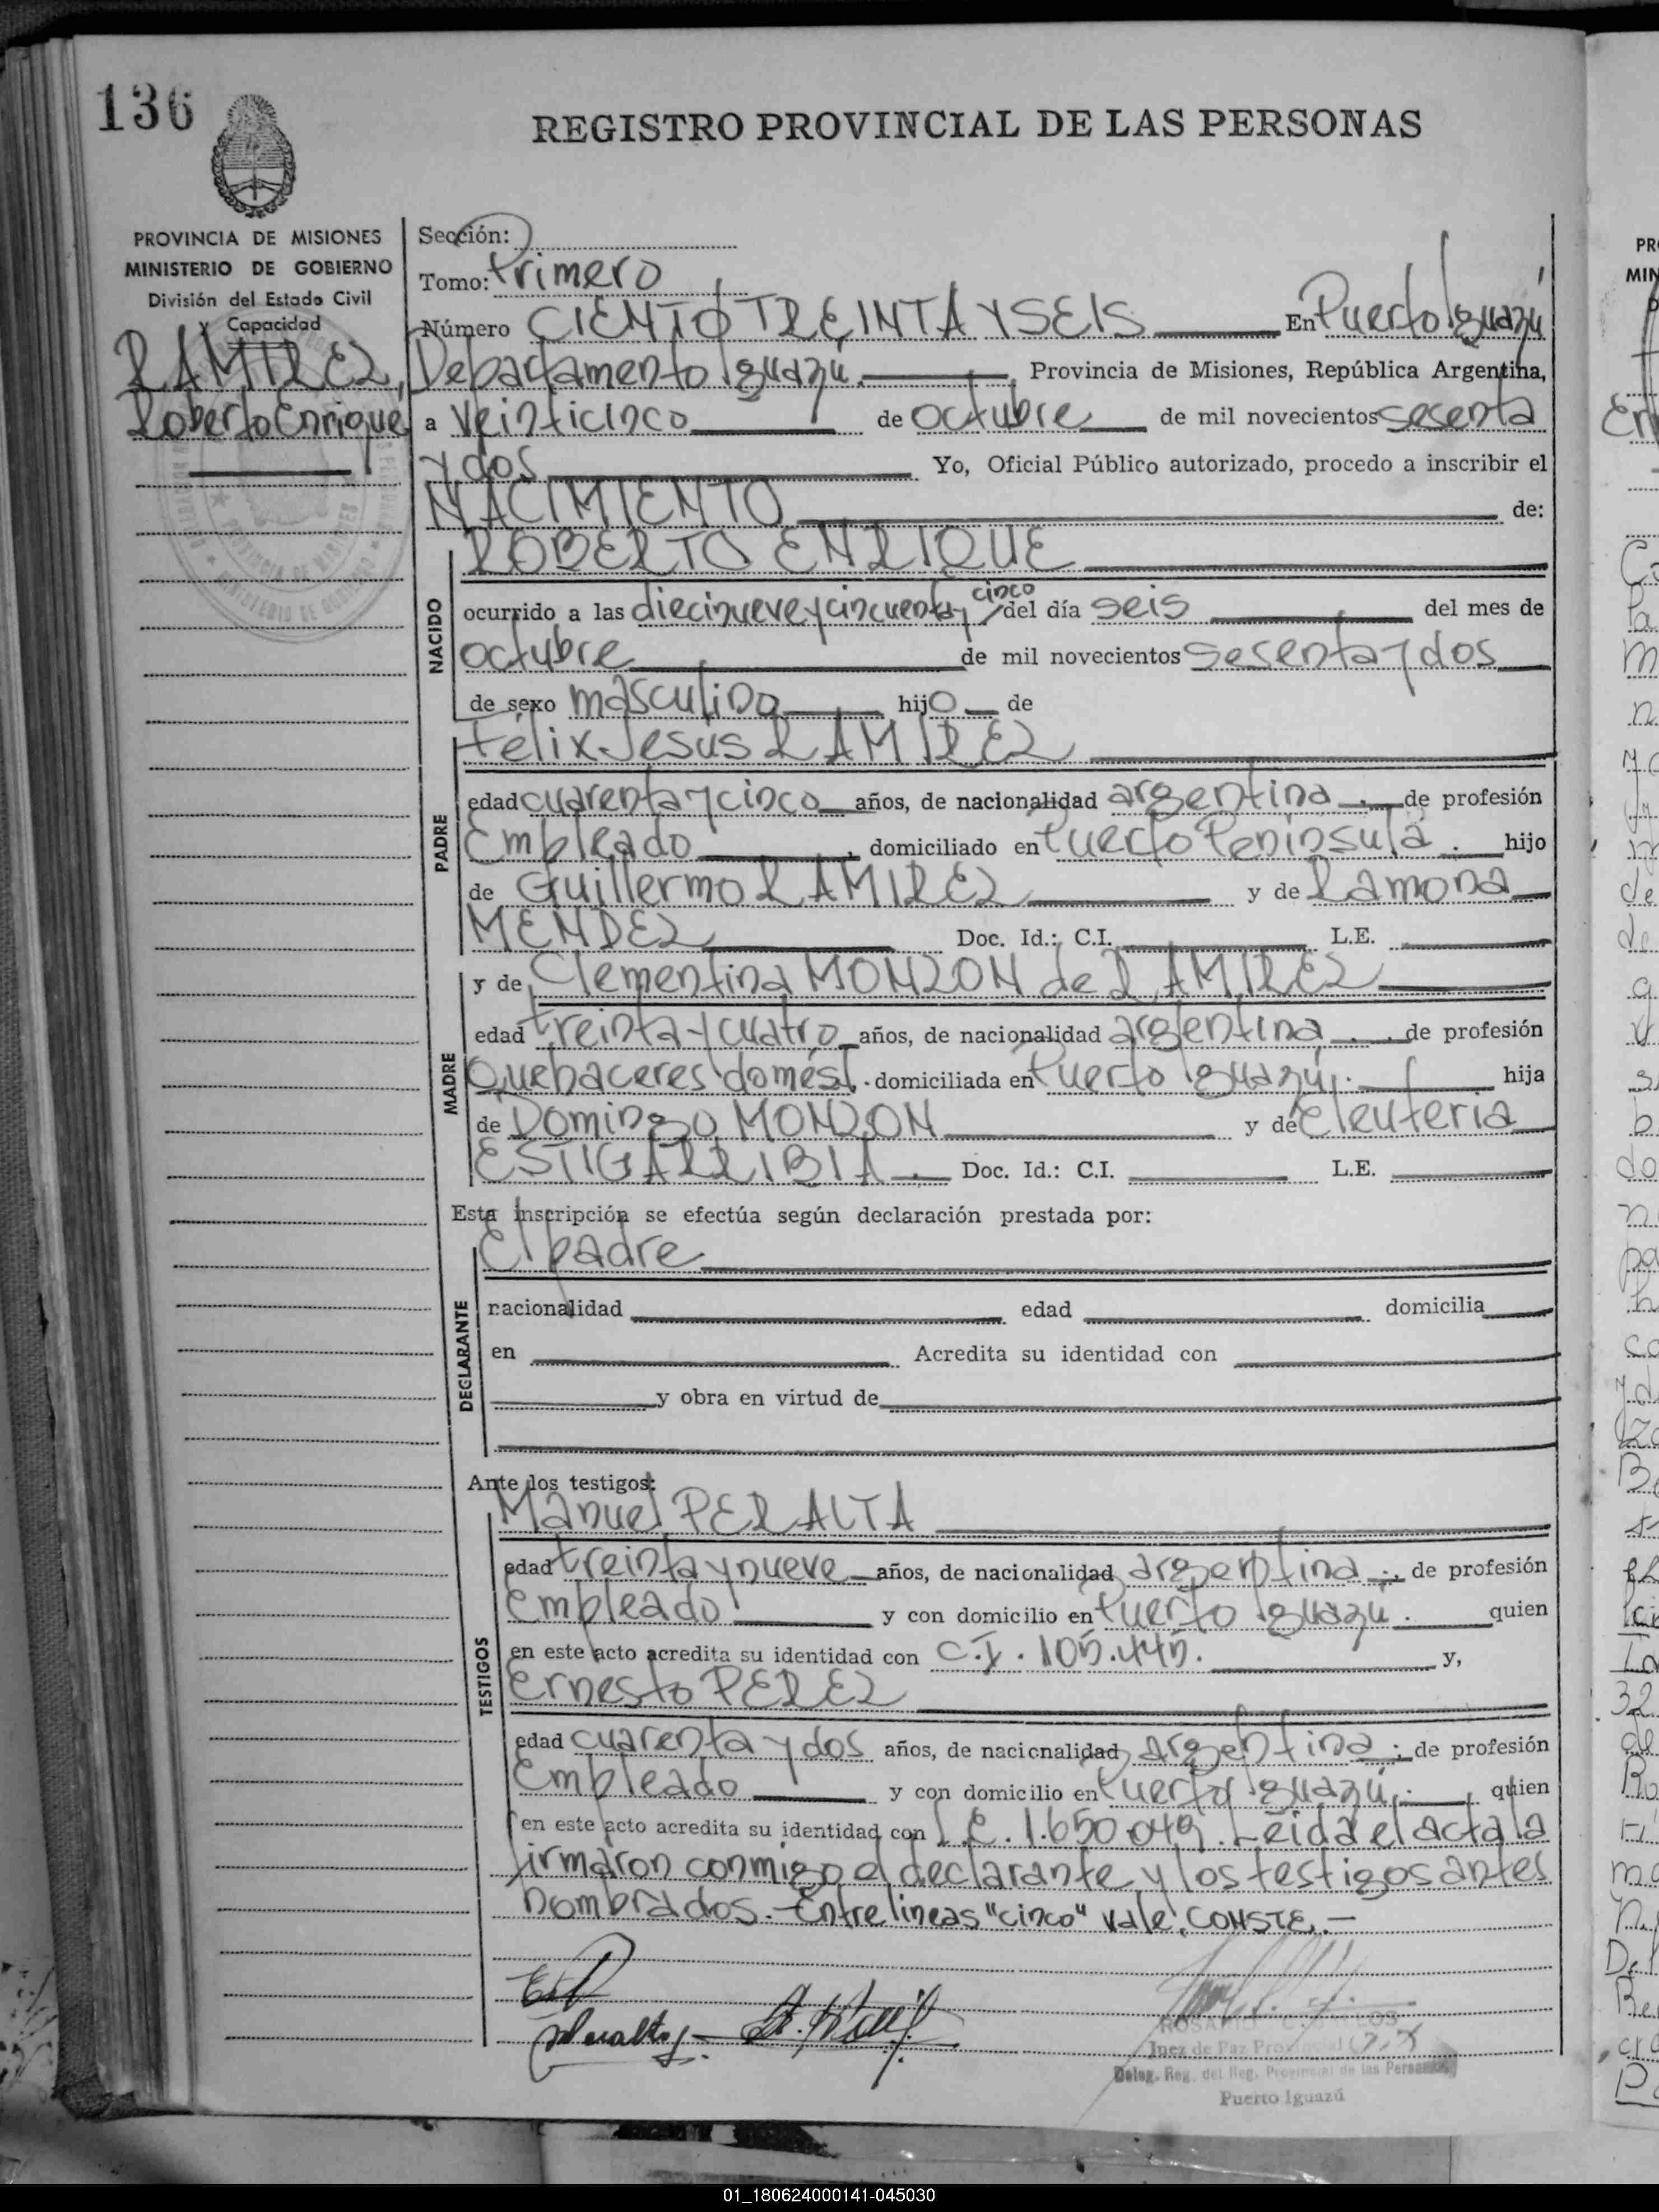 136
REGISTRO PROVINCIAL DE LAS PERSONAS
PROVINCIA DE MISIONES
MINISTERIO DE GOBIERNO
División del Estado Civil
y Capacidad
RAMIREZ,
Roberto Enrique
Sección:
Tomo: Primero
Número CIENTO TREINTA Y SEIS En Puerto Iguazú
Departamento Iguazú. Provincia de Misiones, República Argentina,
a veinticinco de octubre de mil novecientos sesenta
y dos Yo, Oficial Público autorizado, procedo a inscribir el
NACIMIENTO de:
NACIDO
ROBERTO ENRIQUE
cinco
ocurrido a las diecinueve y cincuenta y / del día seis del mes de
octubre de mil novecientos sesenta y dos
de sexo masculino hijo de
PADRE
Félix Jesus RAMIREZ
edad cuarenta y cinco años, de nacionalidad argentina . de profesión
Empleado , domiciliado en Puerto Península . hijo
de Guillermo RAMIREZ y de Ramona
MENDEZ Doc. Id.: C.I. L.E.
MADRE
y de Clementina MONZON de RAMIREZ
edad treinta y cuatro años, de nacionalidad argentina . de profesión
Quehaceres domést. domiciliada en Puerto Iguazú. hija
de Domingo MONZON y de Eleuteria
ESTIGARRIBIA . Doc. Id.: C.I. L.E.
Esta inscripción se efectúa según declaración prestada por:
DECLARANTE
El padre
nacionalidad edad domicilia
en Acredita su identidad con
y obra en virtud de
Ante los testigos:
TESTIGOS
Manuel PERALTA
edad treinta y nueve años, de nacionalidad argentina ; de profesión
Empleado y con domicilio en Puerto Iguazú . quien
en este acto acredita su identidad con C.I. 105.445. y,
Ernesto PEREZ
edad cuarenta y dos años, de nacionalidad argentina ; de profesión
Empleado y con domicilio en Puerto Iguazú. quien
en este acto acredita su identidad con L.E. 1.650.049. Leída el acta la
firmaron conmigo el declarante y los testigos antes
nombrados.- Entre líneas "cinco" vale. CONSTE.-
Juez de Paz Provincial
Deleg. Reg. del Reg. Provincial de las Personas
Puerto Iguazú
01_180624000141-045030